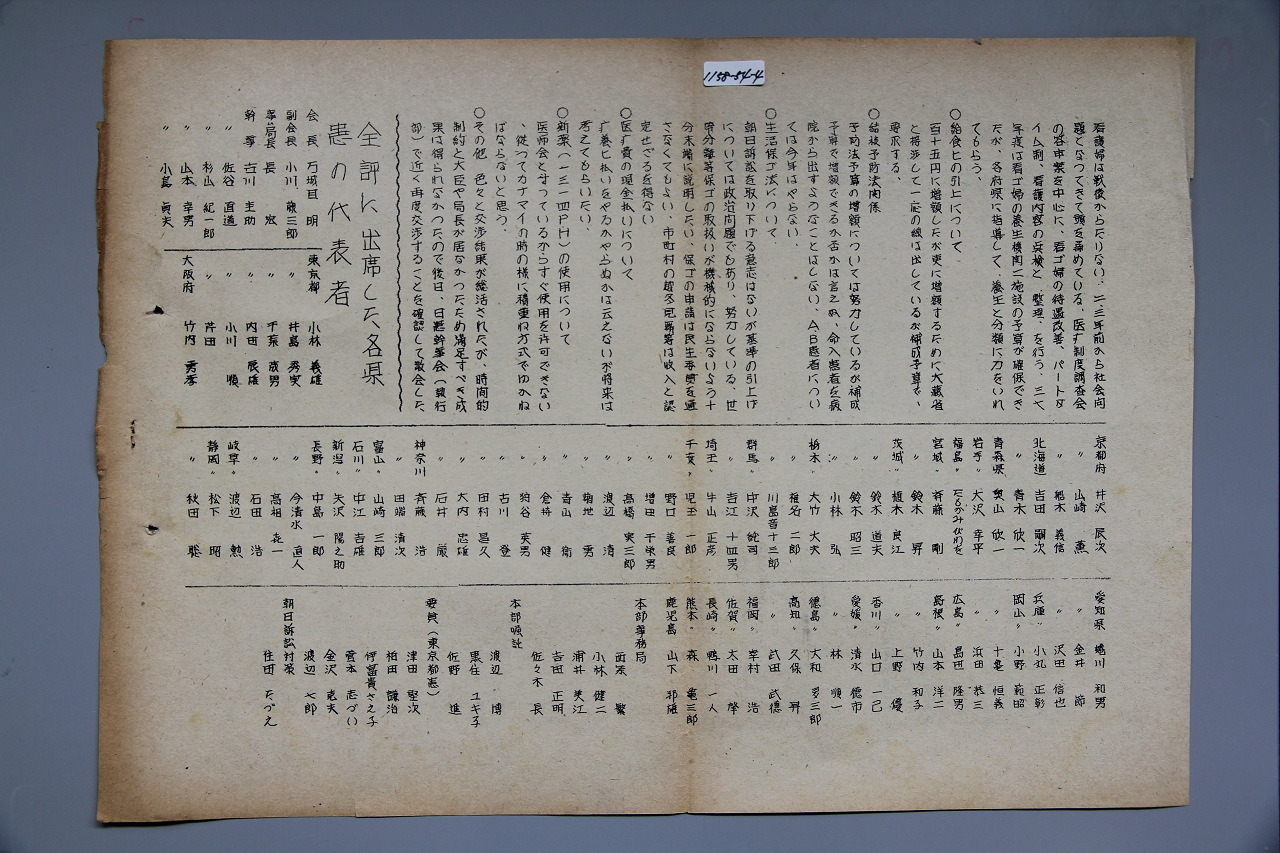 1158-54-4
看護婦は戦後からたりない、二、三年前から社会問
題となつてきて頭を痛めている、医疗制度調査会
の答申案を中心に、看ゴ婦の待遇改善、パートタ
イム制、看護内容の点検と、整理、を行う、三七
年度は看ゴ婦の養生機関ニ施設の予算が確保でき
たが、各府県に指導して、養生と分類に力をいれ
てもらう、
○給食ヒの引上について、
百十五円に増額したが更に増額するために大蔵省
と折渉して一応の線は出しているが補成予算で、
要求する、
○結核予防法関係
予防法予算の増額については努力しているが補成
予算で増額できるか否かは言えぬ、命入患者を病
院から出すようなことはしない、A、B患者につい
ては今年はやらない、
○生活保ゴ法について
朝日訴訟を取り下げる意志はないが基準の引上げ
については政治向題でもあり、努力している、世
帯分離等保ゴの取扱いが機械的にならないよう十
分末端に説明したい、保ゴの申請は民生委員を通
さなくてもよい、市町村の越冬見舞等は収入と認
定せざるを得ない
○医疗費の現金払いについて
疗養ヒ払いをやるかやらぬかは云えないが将来は
考えてもらいたい、
○新薬(一三一四PH)の使用について
医师会と斗つているからすぐ使用を許可できない
、従つてカナマイの時の様に積重ね方式でゆかね
ばならないと思う、
○その他、色々と交渉結果が総活されたが、時間的
制約と大臣や局長が居なかつたため満足すべき成
果は得られなかつたので後日、日患幹事会(執行
部)で近く再度交渉することを確認して散会した
全評に出席した各県
患の代表者
会長 万城目 明
副会長 小川 藤三郎
事局長 長 宏
幹事 古川 圭助
〃 佐谷 直道
〃 杉山 紀一郎
〃 山本 幸男
〃 小島 貞夫
東京都 小林 義雄
〃 井島 秀実
〃 千葉 茂男
〃 内田 辰雄
〃 小川 順
〃 芹田
大阪府 竹内 勇孝
京都府 井沢 辰次
〃 山崎 薫
〃 船木 義信
北海道 吉田 嗣次
〃 青木 欣一
青森県 奥山 欣一
岩手〃 大沢 幸平
福島〃
宮城〃 斉藤 剛
〃 鈴木 昇
茨城〃 植木 良江
〃 鈴木 道夫
〃 鈴木 昭三
〃 小林 弘
栃木〃 大竹 大夫
〃 椎名 二郎
〃 川島音十三郎
群馬〃 中沢 純司
〃 吉江 十四男
埼玉〃 牛山 正彦
千葉〃 児玉 一郎
〃 野口 善良
〃 増田 千栄男
〃 高橋 実三郎
〃 渡辺 清
〃 菊地 勇
〃 青山 衛
〃 倉井 健
〃 狩谷 英男
〃 古川 登
〃 田村 昌久
〃 大内 忠雄
〃 石井 厳
神奈川 斉藤 浩
〃 田端 清次
富山〃 山崎 三郎
石川〃 中江 吉雄
新潟〃 矢沢 陽之助
長野〃 中島 一郎
〃 今清水 直人
〃 高相 喜一
〃 石田 浩
岐阜〃 渡辺 勲
静岡〃 松下 昭
〃 秋田 聡
愛知県 蜷川 和男
〃 金井 節
〃 沢田 信也
兵庫〃 小丸 正彰
岡山〃 小野 範昭
〃 十亀 恒義
〃 浜田 恭三
広島〃 島田 隆男
島根〃 山本 洋二
〃 竹内 和子
〃 上野 優
香川〃 山口 一己
愛媛〃 清水 徳市
〃 林 順一
徳島〃 大和 多三郎
高知〃 久保 昇
〃 武田 武徳
福岡〃 岸村 浩
佐賀〃 太田 肇
長崎〃 鴨川 一人
熊本〃 森 亀三郎
鹿児島 山下 邦雄
本部事務局
西原 繁
小林 健二
浦井 美江
吉田 正明
佐々木 長
本部嘱託
渡辺 博
黒住 ユキ子
佐野 進
委員(東京都患)
津田 堅次
柏田 謙治
伊富貴さえ子
宮本 志づい
金沢 克夫
渡辺 七郎
朝日訴訟対策
住田 たづえ